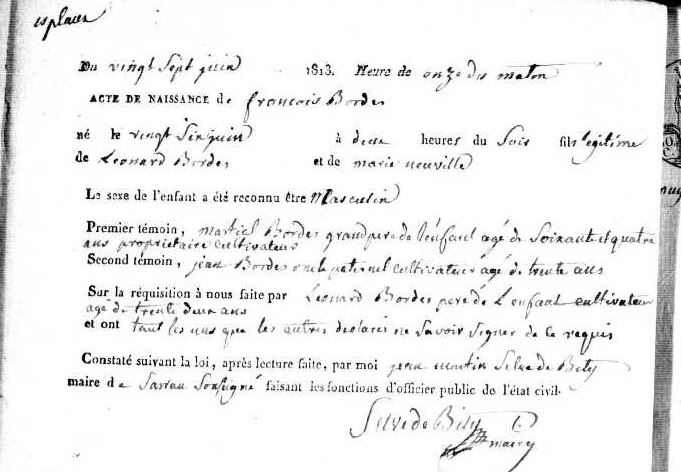 esplaces
Du vingt Sept juin 1813. Heure de onze du maton
ACTE DE NAISSANCE de francois Bordes
né le vingt Six juin à deux heures du Soir fils légitime
de Leonard Bordes et de marie neuville
Le sexe de l'enfant a été reconnu être Masculin
Premier témoin, martiel Bordes grand pere de l'enfant agé de Soixant et quatre
ans propriétaire cultivateur
Second témoin, jean Bordes oncle paternel cultivateur agé de trente ans
Sur la réquisition à nous faite par Leonard Bordes pere de L'enfant cultivateur
agé de trente deux ans
et ont tant les uns que les autres declarés ne Savoir Signer de ce requis
Constaté suivant la loi, après lecture faite, par moi jean martin Selve de Bity
maire de Sarran Soussigné faisant les fonctions d'officier public de l'état civil.
Selve de Bity
maire